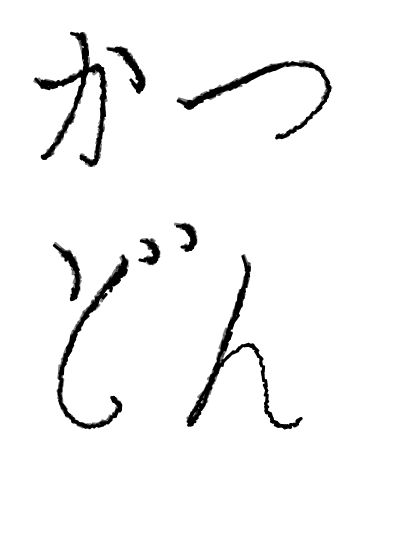 かつ
どん